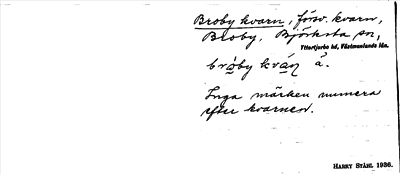 Broby kvarn, försv. kvarn,
Broby, Björksta sn,
Yttertjurbo hd, Västmanlands län.
bròby kváṇ å.
Inga märken numera
efter kvarnen.
HARRY STÅHL 1936.